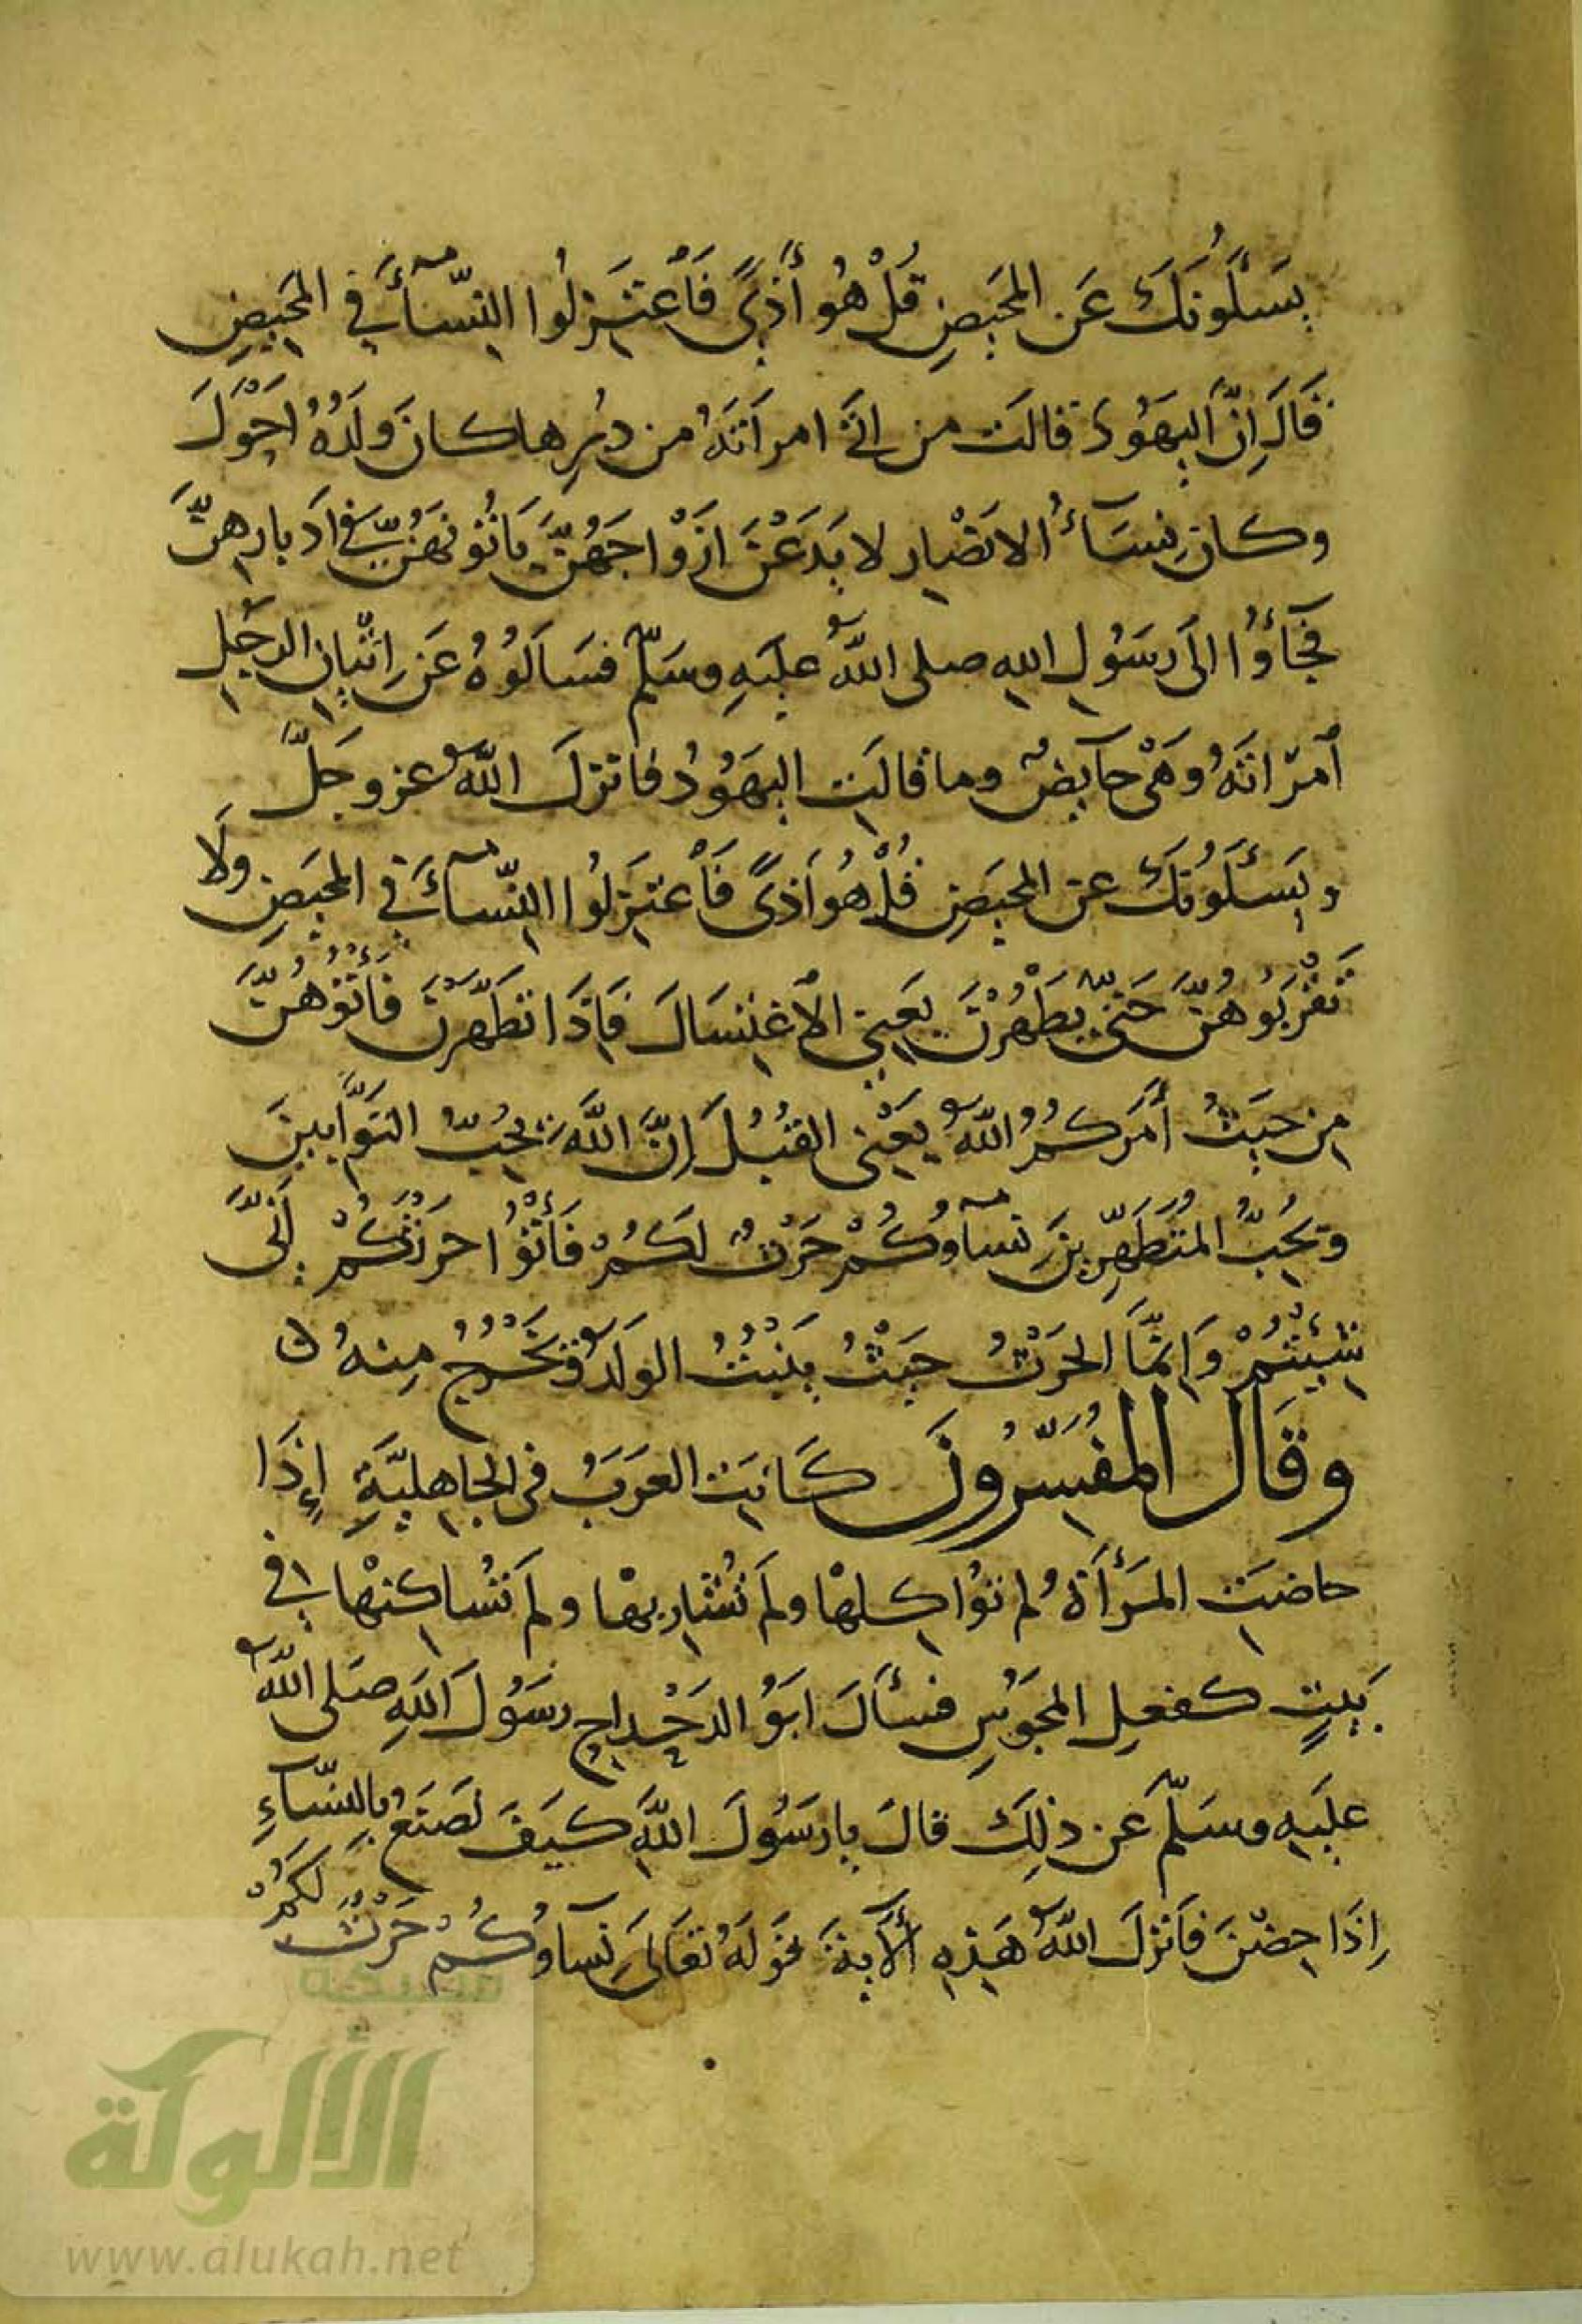 يَسْـَٔلُونَكَ عَنِ المَحِيضِ قُلْ هُوَ أَذًى فَاعْتَزِلُوا النِّسَآءَ فِي المَحِيضِ
قَالَ إِنَّ اليَهُودَ قالَت من اتى امرَاتَهُ من دبُرِها كانَ ولَدُهُ احْوَلَ
وكان نِسَآءُ الانصَارِ لا يَدَعْنَ ازْوَاجَهُنَّ يَاتُونَهُنَّ في ادبارِهنَّ
فَجَآؤُا الى رَسُولِ اللهِ صلى اللهُ عليهِ وسَلّم فسَالُوهُ عَن إِتْيانِ الرجُلِ
أمرَاتَهُ وَهْيَ حآيضٌ وما قالَتِ اليَهُودُ فانزلَ اللهُ عز وجَلَّ
ويَسْـَٔلُونَكَ عن المحيضِ قُلْ هُوَ أَذًى فَاعْتَزِلُوا النِّسَآءَ فِي المَحِيضِ ولَا
تَقْرَبُوهُنَّ حَتَّى يَطْهُرْنَ يَعني الاغتِسَالَ فَإِذَا تطَهَّرْنَ فَأْتُوهُنَّ
مِن حَيْثُ أَمَرَكُمُ اللهُ يَعْنِى القُبُلَ إِنَّ اللهَ يُحِبُّ التَّوَّابِينَ
وَيُحِبُّ المُتَطَهِّرِينَ نِسَآوُكُمْ حَرْثٌ لَكُمْ فَأْتُوْا حَرْثَكُمْ أَنَّى
شِئْتُمْ وَإِنَّمَا الحَرْثُ حَيْثُ يَنْبُتُ الوَلَدُ وَيَخْرُجُ مِنهُ
وقَال المفُسّرُونَ كَانَتِ العَرَبُ فى الجاهليَّةِ إِذَا
حاضَتِ المَرْأَةُ لم تُوَاكِلها ولَم تُشَارِبها ولم تُسَاكنْها في
بَيْتٍ كفعلِ المجُوسِ فسأَلَ ابُو الدَحْدَاحِ رسُولَ اللهِ صَلى اللهُ
عليَهِ وسَلّم عن ذلِكَ قالَ يا رسَُولَ اللهِ كيَفَ نصَنَعُ بِالنِّسَآءِ
إِذَا حِضْنَ فَانْزَلَ اللهُ هَذِهِ الآيةَ قولهُ تعَالى نِسَآوُكُمْ حَرْثٌ لكُمْ
شبكة
الألوكة
www.alukah.net